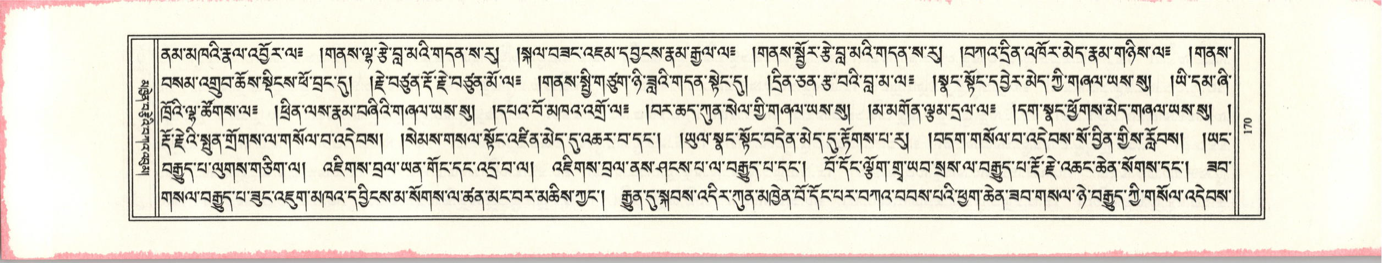 ནམ་མཁའི་རྣལ་འབྱོར་ལ༔ །གནས་ལྷ་རྩེ་བླ་མའི་གདན་ས་རུ། །སྐལ་བཟང་འཇམ་དབྱངས་རྣམ་རྒྱལ་ལ༔ །གནས་སྦྱོར་རྩེ་བླ་མའི་གདན་ས་རུ། །བཀའ་དྲིན་འཁོར་མེད་རྣམ་གཉིས་ལ༔ །གནས་
བསམ་འགྲུབ་ཆོས་སྡིངས་ཕོ་བྲང་དུ། །རྗེ་བཙུན་རྡོ་རྗེ་བཙུན་མོ་ལ༔ །གནས་སྤྱི་གཙུག་ཉི་ཟླའི་གདན་སྟེང་དུ། །དྲིན་ཅན་རྩ་བའི་བླ་མ་ལ༔ །སྣང་སྟོང་དབྱེར་མེད་ཀྱི་གཞལ་ཡས་སུ། །ཡི་དམ་ཞི་
ཁྲོའི་ལྷ་ཚོགས་ལ༔ །ཕྲིན་ལས་རྣམ་བཞིའི་གཞལ་ཡས་སུ། །དཔའ་བོ་མཁའ་འགྲོ་ལ༔ །བར་ཆད་ཀུན་སེལ་གྱི་གཞལ་ཡས་སུ། །མ་མགོན་ལྕམ་དྲལ་ལ༔ །དག་སྣང་ཕྱོགས་མེད་གཞལ་ཡས་སུ། །
རྡོ་རྗེའི་སྤུན་གྲོགས་ལ་གསོལ་བ་འདེབས། །སེམས་གསལ་སྟོང་འཛིན་མེད་དུ་འཆར་བ་དང་། །ཡུལ་སྣང་སྟོང་བདེན་མེད་དུ་རྟོགས་པ་རུ། །བདག་གསོལ་བ་འདེབས་སོ་བྱིན་གྱིས་རློབས། །ཡང་
བརྒྱུད་པ་ལུགས་གཅིག་ལ། འཇིགས་བྲལ་ཡན་གོང་དང་འདྲ་བ་ལ། འཇིགས་བྲལ་ནས་ཤངས་པ་ལ་བརྒྱུད་པ་དང་། བོ་དོང་ལྷོག་གྲྭ་ཡབ་སྲས་ལ་བརྒྱུད་པ་རྡོ་རྗེ་འཆང་ཆེན་སོགས་དང་། ཟབ་
གསལ་བརྒྱུད་པ་ཟུང་འཇུག་མཁའ་དབྱིངས་མ་སོགས་ལ་ཚན་མང་བར་མཆིས་ཀྱང་། རྒྱུན་དུ་སྐབས་འདིར་ཀུན་མཁྱེན་བོ་དོང་པར་བཀའ་བབས་པའི་ཕྱག་ཆེན་ཟབ་གསལ་ཉེ་བརྒྱུད་ཀྱི་གསོལ་འདེབས་
170